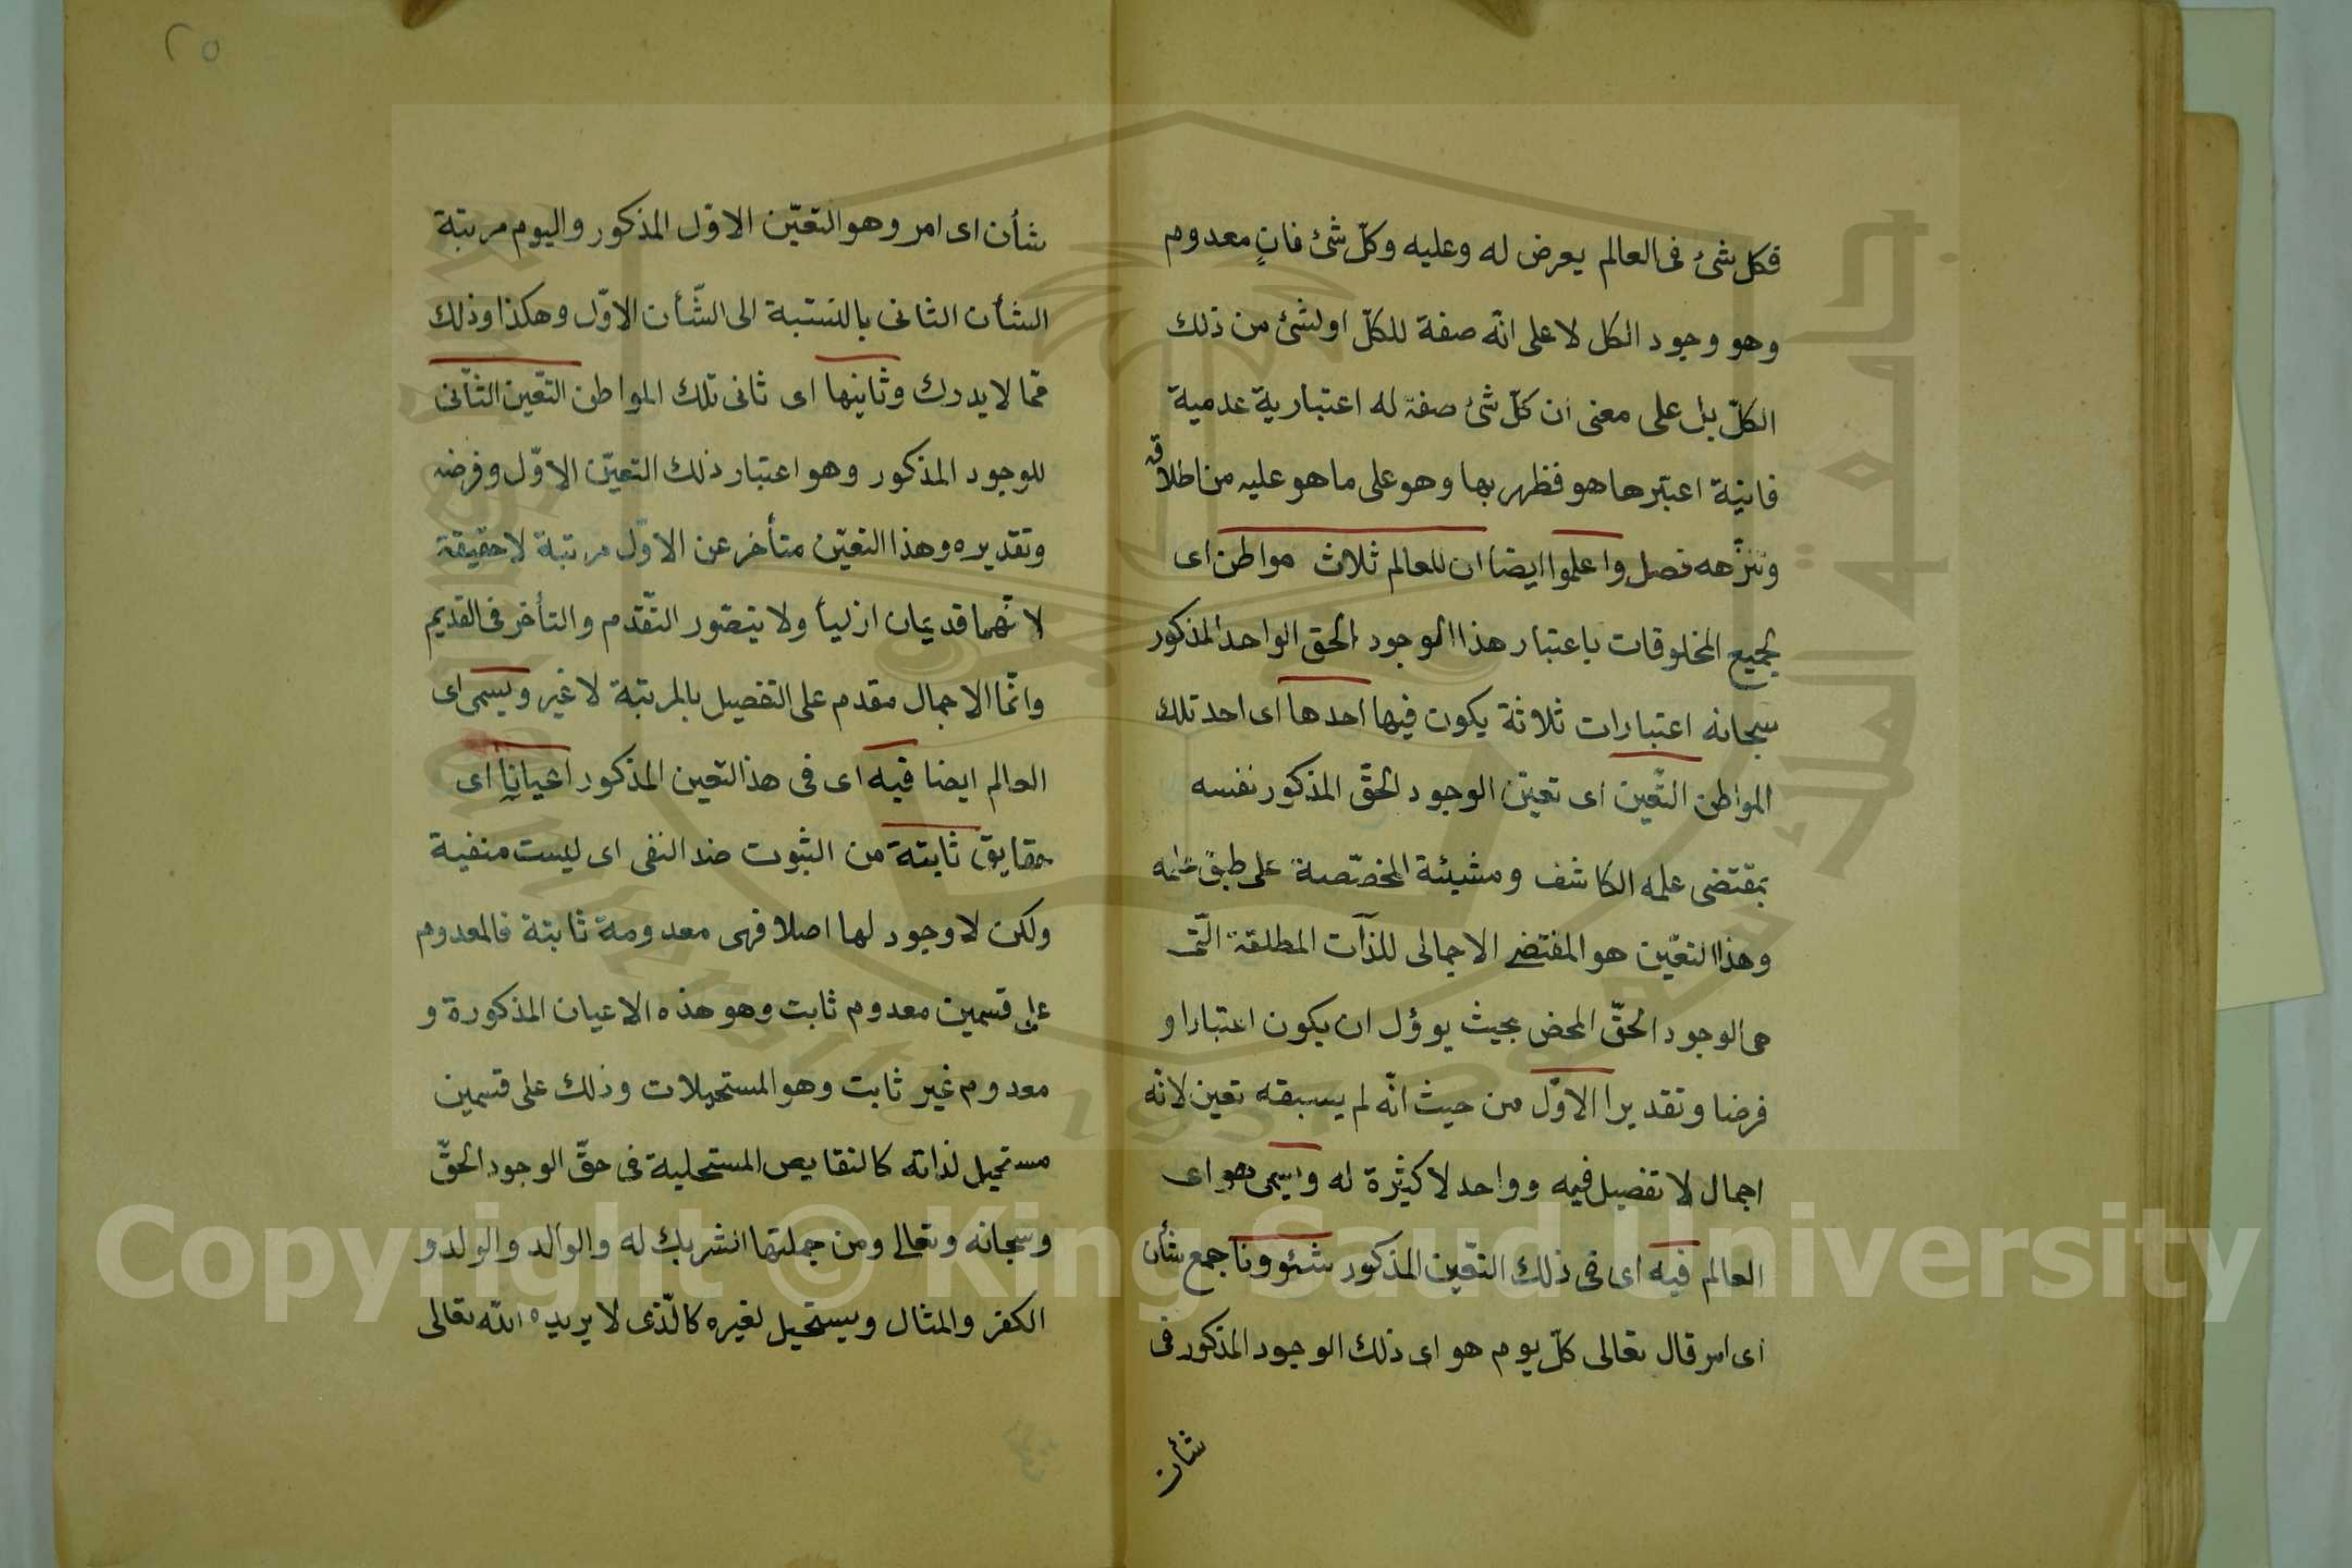 فكل شئ فى العالم يعرض له وعليه وكلّ شئ فانٍ معدوم
وهو وجود الكل لا على انّه صفة للكلّ او لشئ من ذلك
الكلّ بل على معنى ان كلّ شئ صفة له اعتبارية عدمية
فانية اعتبرها هو فظهر بها وهو على ما هو عليه من اطلاقه
وتنزّهه فصل واعلموا ايضا ان للعالم ثلاث مواطن اى
لجميع المخلوقات باعتبار هذا الوجود الحق الواحد المذكور
سبحانه اعتبارات ثلاثة يكون فيها احدها اى احد تلك
المواطن التّعين اى تعيّن الوجود الحقّ المذكور نفسه
بمقتضى علمه الكاشف ومشيئة المخصّصة على طبق علمه
وهذا التعيّن هو المقتضى الاجمالى للذآت المطلقة الّتى
هى الوجود الحقّ المحض بحيث يوؤل ان يكون اعتبارا و
فرضا وتقديرا الاوّل من حيث انّه لم يسبقه تعين لانّه
اجمال لا تفصيل فيه وواحد لا كثيرة له ويسمى هو اى
العالم فيه اى فى ذلك التّعين المذكور شئوونا جمع شأن
اى امر قال تعالى كلّ يوم هو اى ذلك الوجود المذكور فى
شأن
٢٥
شأن اى امر وهو التعيّن الاوّل المذكور واليوم مرتبة
الشأن الثانى بالنسبة الى الشّأن الاوّل وهكذا وذلك
ممّا لا يدرك وثانيها اى ثانى تلك المواطن التّعين الثّانى
للوجود المذكور وهو اعتبار ذلك التعيّن الاوّل وفرضه
وتقديره وهذا التعيّن متأخر عن الاوّل مرتبة لا حقيقة
لانّهما قديمان ازلياً ولا يتصّور التّقدم والتأخر فى القديم
وانّما الاجمال مقدم على التفصيل بالمرتبة لا غير ويسمى اى
العالم ايضا فيه اى فى هذا التعين المذكور اعيانا اى
حقايق ثابتة من الثبوت ضد النفى اى ليست منفية
ولكن لا وجود لها اصلا فهى معدومة ثابتة فالمعدوم
على قسمين معدوم ثابت وهو هذه الاعيان المذكورة و
معدوم غير ثابت وهو المستحيلات وذلك على قسمين
مستحيل لذاته كالنقايص المستحلية فى حقّ الوجود الحقّ
وسبحانه وتعالى ومن جملتها الشريك له والوالد والولد و
الكفر والمثال ويستحيل لغيره كالّذى لا يريده الله تعالى
Copyright © King Saud University